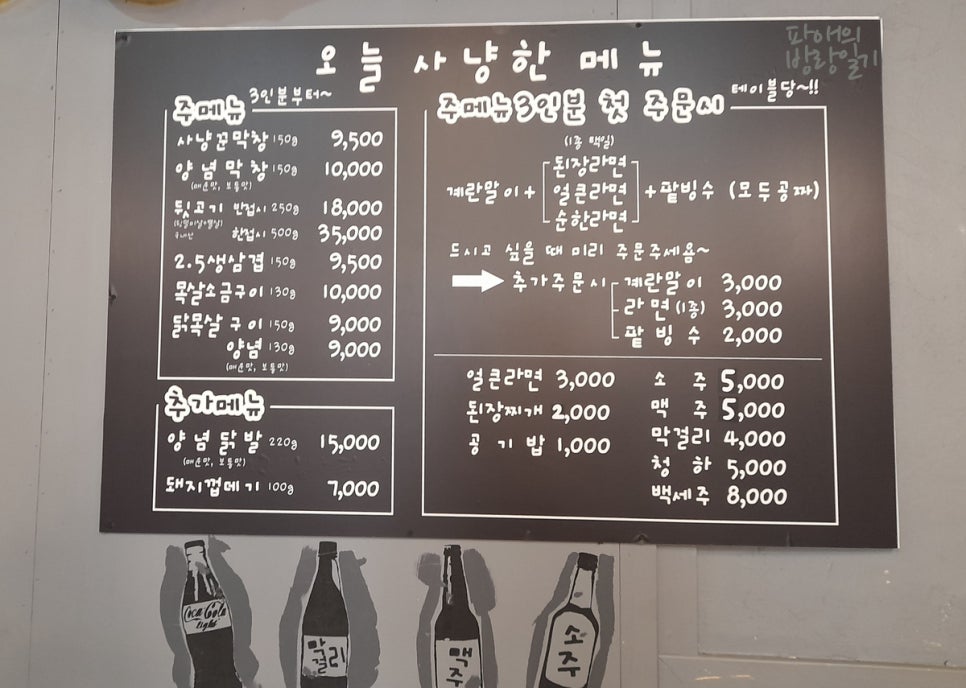 파애의
방랑일기
오늘 사냥한 메뉴
주메뉴 3인분부터~
사냥꾼막창 150g 9,500
양념막창 150g 10,000
(매운맛, 보통맛)
뒷고기 반접시 250g 18,000
국내산 한접시 500g 35,000
2.5생삼겹 150g 9,500
목살소금구이 130g 10,000
닭목살 구이 150g 9,000
양념 130g 9,000
(매운맛, 보통맛)
추가메뉴
양념닭발 220g 15,000
(매운맛, 보통맛)
돼지껍메기 100g 7,000
주메뉴3인분 첫 주문시 테이블당~!!
(1종 택일)
된장라면
계란말이+ 얼큰라면 +팥빙수 (모두공짜)
순한라면
드시고 싶을 때 미리 주문주세욤~
추가주문시 계란말이 3,000
라면(1종) 3,000
팥빙수 2,000
얼큰라면 3,000
된장찌개 2,000
공기밥 1,000
소주 5,000
맥주 5,000
막걸리 4,000
청하 5,000
백세주 8,000
Coca-Cola
light
막걸리
맥주
소주